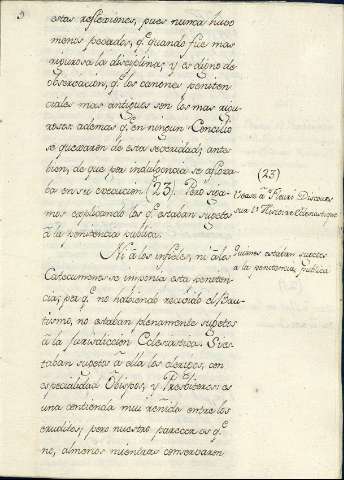 9
estas reflexiones, pues nunca hubo
menos pecados, q.e quando fue mas
rigurosa la disciplina; y es digno de
observacion, q.e los canones peniten
ciales mas antiguos son los mas rigu
rosos: ademas q.e en ningun Concilio
se quexaron de esta severidad; antes
bien, de que por indulgencia se afloxa
ba en su execucion (23). Pero siga
mos explicando los q.e estaban sugetos
á la penitencia publica.
(23)
Vease á Fleuri Discours
sur l' Histoire Eclesiastique
Ni á los infieles, ni á los
Catecumenos se imponia esta peniten
cia; por q.e no habiendo recivido el Bau
tismo, no estaban plenamente sugetos
á la Jurisdiccion Eclesiastica. Si es
taban sugetos á ella los clerigos, con
especialidad Obispos, y Presbiteros: es
una contienda mui reñida entre los
eruditos; pero nuestro parecer es q.e
no, almenos mientras conservaren
Quienes estaban sugetos
a la penitencia publica